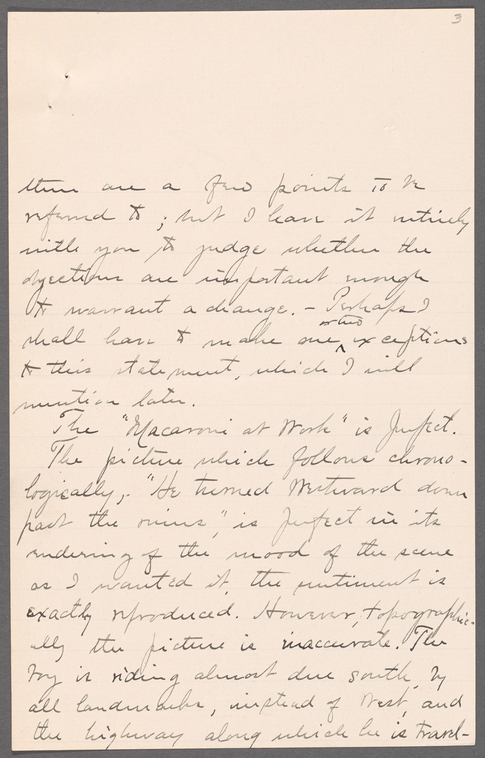 3
there are a few points to be
referred to; but I leave it entirely
with you to judge whether the
objections are important enough
to warrant a change. – Perhaps I
shall have to make one or two exceptions
to this statement, which I will
mention later.
The "Macaroni at Work" is perfect.
The picture which follows chrono-
logically, "He turned Westward down
past the ruins," is perfect in its
rendering of the mood of the scene
as I wanted it, the sentiment is
exactly reproduced. However, topographic-
ally the picture is inaccurate. The
boy is riding almost due south, by
all landmarks, instead of West, and
the highway along which he is travel-